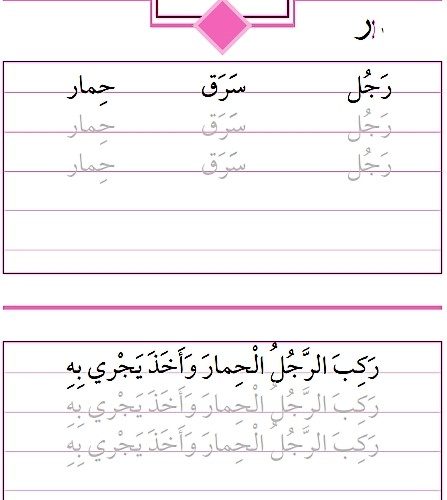 ر
رَجُل سَرَق حِمار
رَجُل سَرَق حِمار
رَجُل سَرَق حِمار
رَكِبَ الرَّجُلُ الْحِمارَ وَأَخَذَ يَجْري بِهِ
رَكِبَ الرَّجُلُ الْحِمارَ وَأَخَذَ يَجْري بِهِ
رَكِبَ الرَّجُلُ الْحِمارَ وَأَخَذَ يَجْري بِهِ